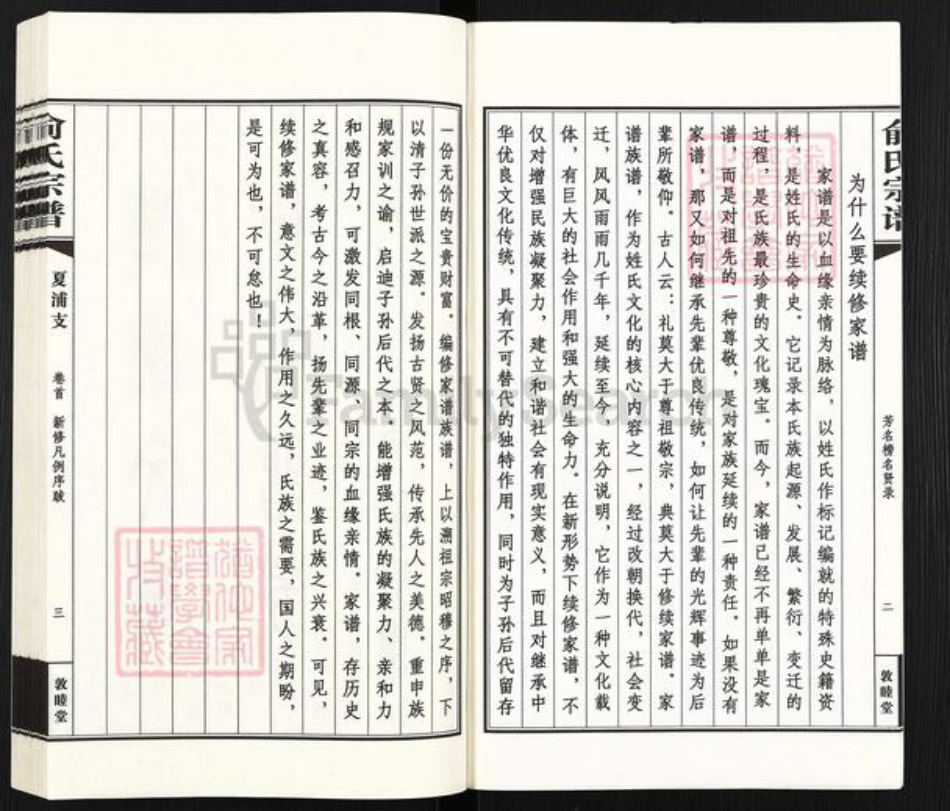 俞氏宗谱
芳名榜名贤录
二
敦睦堂
为什么要续修家谱
家谱是以血缘亲情为脉络，以姓氏作标记编就的特殊史籍资
料，是姓氏的生命史。它记录本氏族起源、发展、繁衍、变迁的
过程，是氏族最珍贵的文化瑰宝。而今，家谱已经不再单单是家
谱，而是对祖先的一种尊敬，是对家族延续的一种责任。如果没有
家谱，那又如何继承先辈优良传统，如何让先辈的光辉事迹为后
辈所敬仰。古人云：礼莫大于尊祖敬宗，典莫大于修续家谱。家
谱族谱，作为姓氏文化的核心内容之一，经过改朝换代，社会变
迁，风风雨雨几千年，延续至今，充分说明，它作为一种文化载
体，有巨大的社会作用和强大的生命力。在新形势下续修家谱，不
仅对增强民族凝聚力，建立和谐社会有现实意义，而且对继承中
华优良文化传统，具有不可替代的独特作用，同时为子孙后代留存
一份无价的宝贵财富。编修家谱族谱，上以溯祖宗昭穆之序，下
以清子孙世派之源。发扬古贤之风范，传承先人之美德。重申族
规家训之谕，启迪子孙后代之本，能增强氏族的凝聚力、亲和力
和感召力，可激发同根、同源、同宗的血缘亲情。家谱，存历史
之真容，考古今之沿革，扬先辈之业迹，鉴氏族之兴衰。可见，
续修家谱，意文之伟大，作用之久远，氏族之需要，国人之期盼，
是可为也，不可怠也！
俞氏宗谱
夏浦支
卷首
新修凡例序跋
三
敦睦堂
FamilySearch